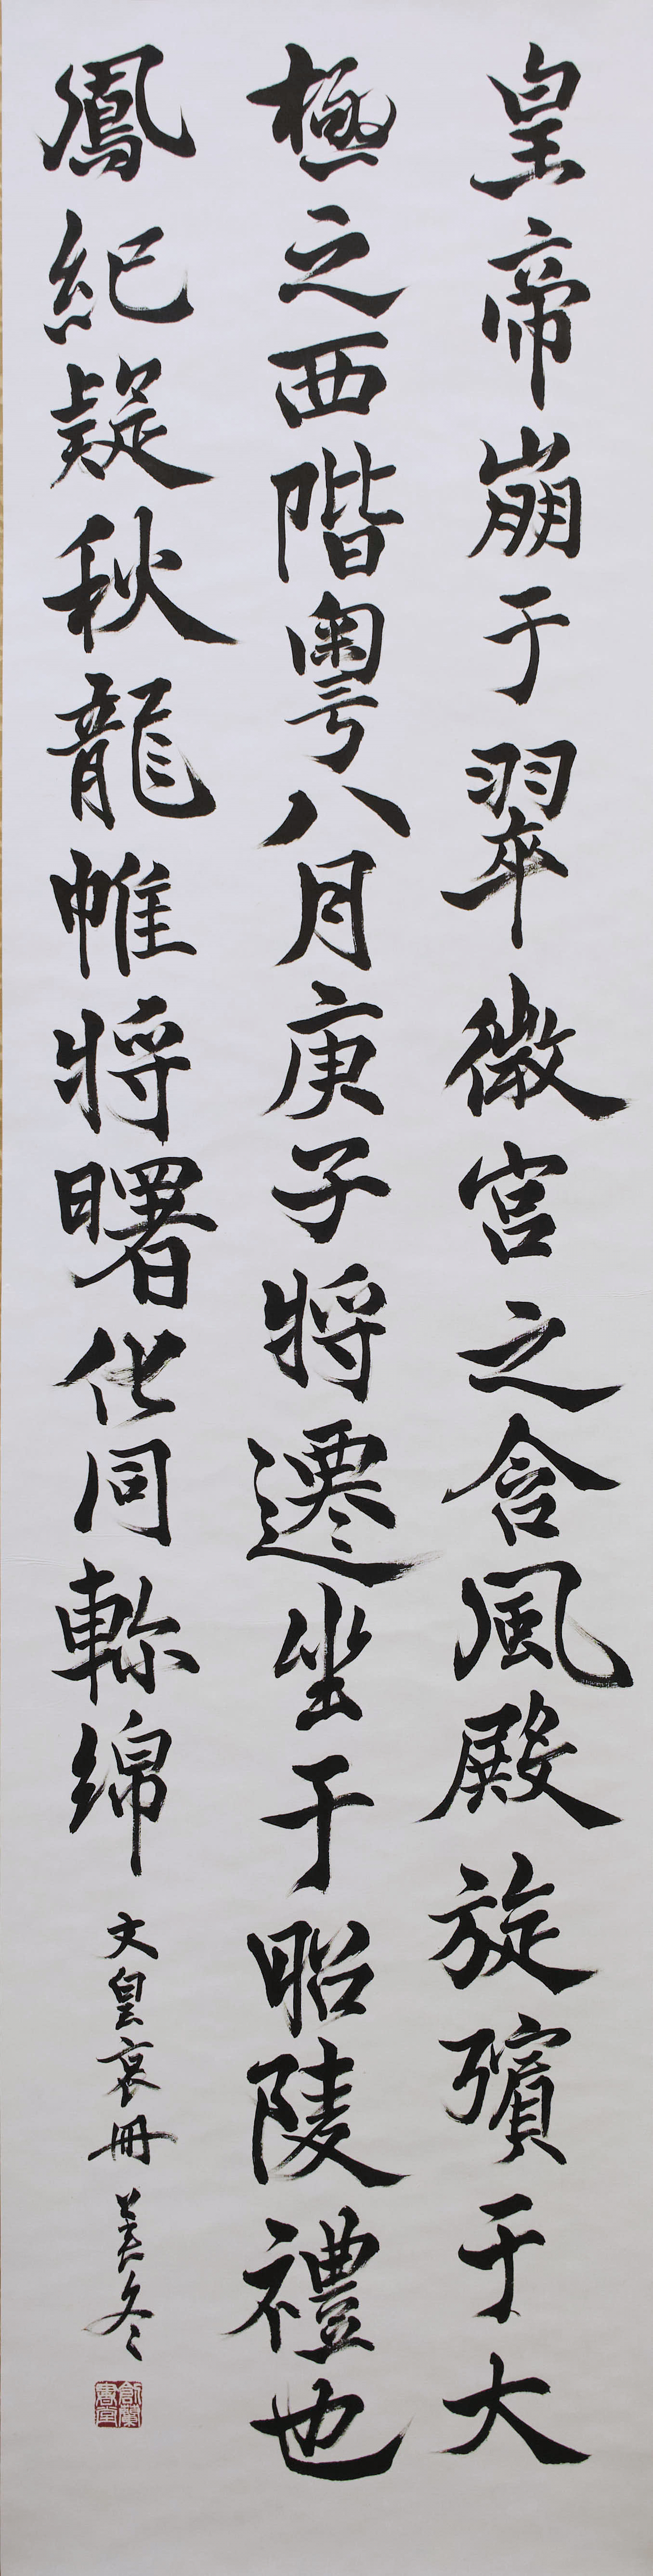 皇帝崩于翠微宮之含風殿旋殯于大
極之西階粤八月庚子將遷坐于昭陵禮也
鳳紀疑秋龍帷將曙化同軫綿
文皇哀冊 美冬